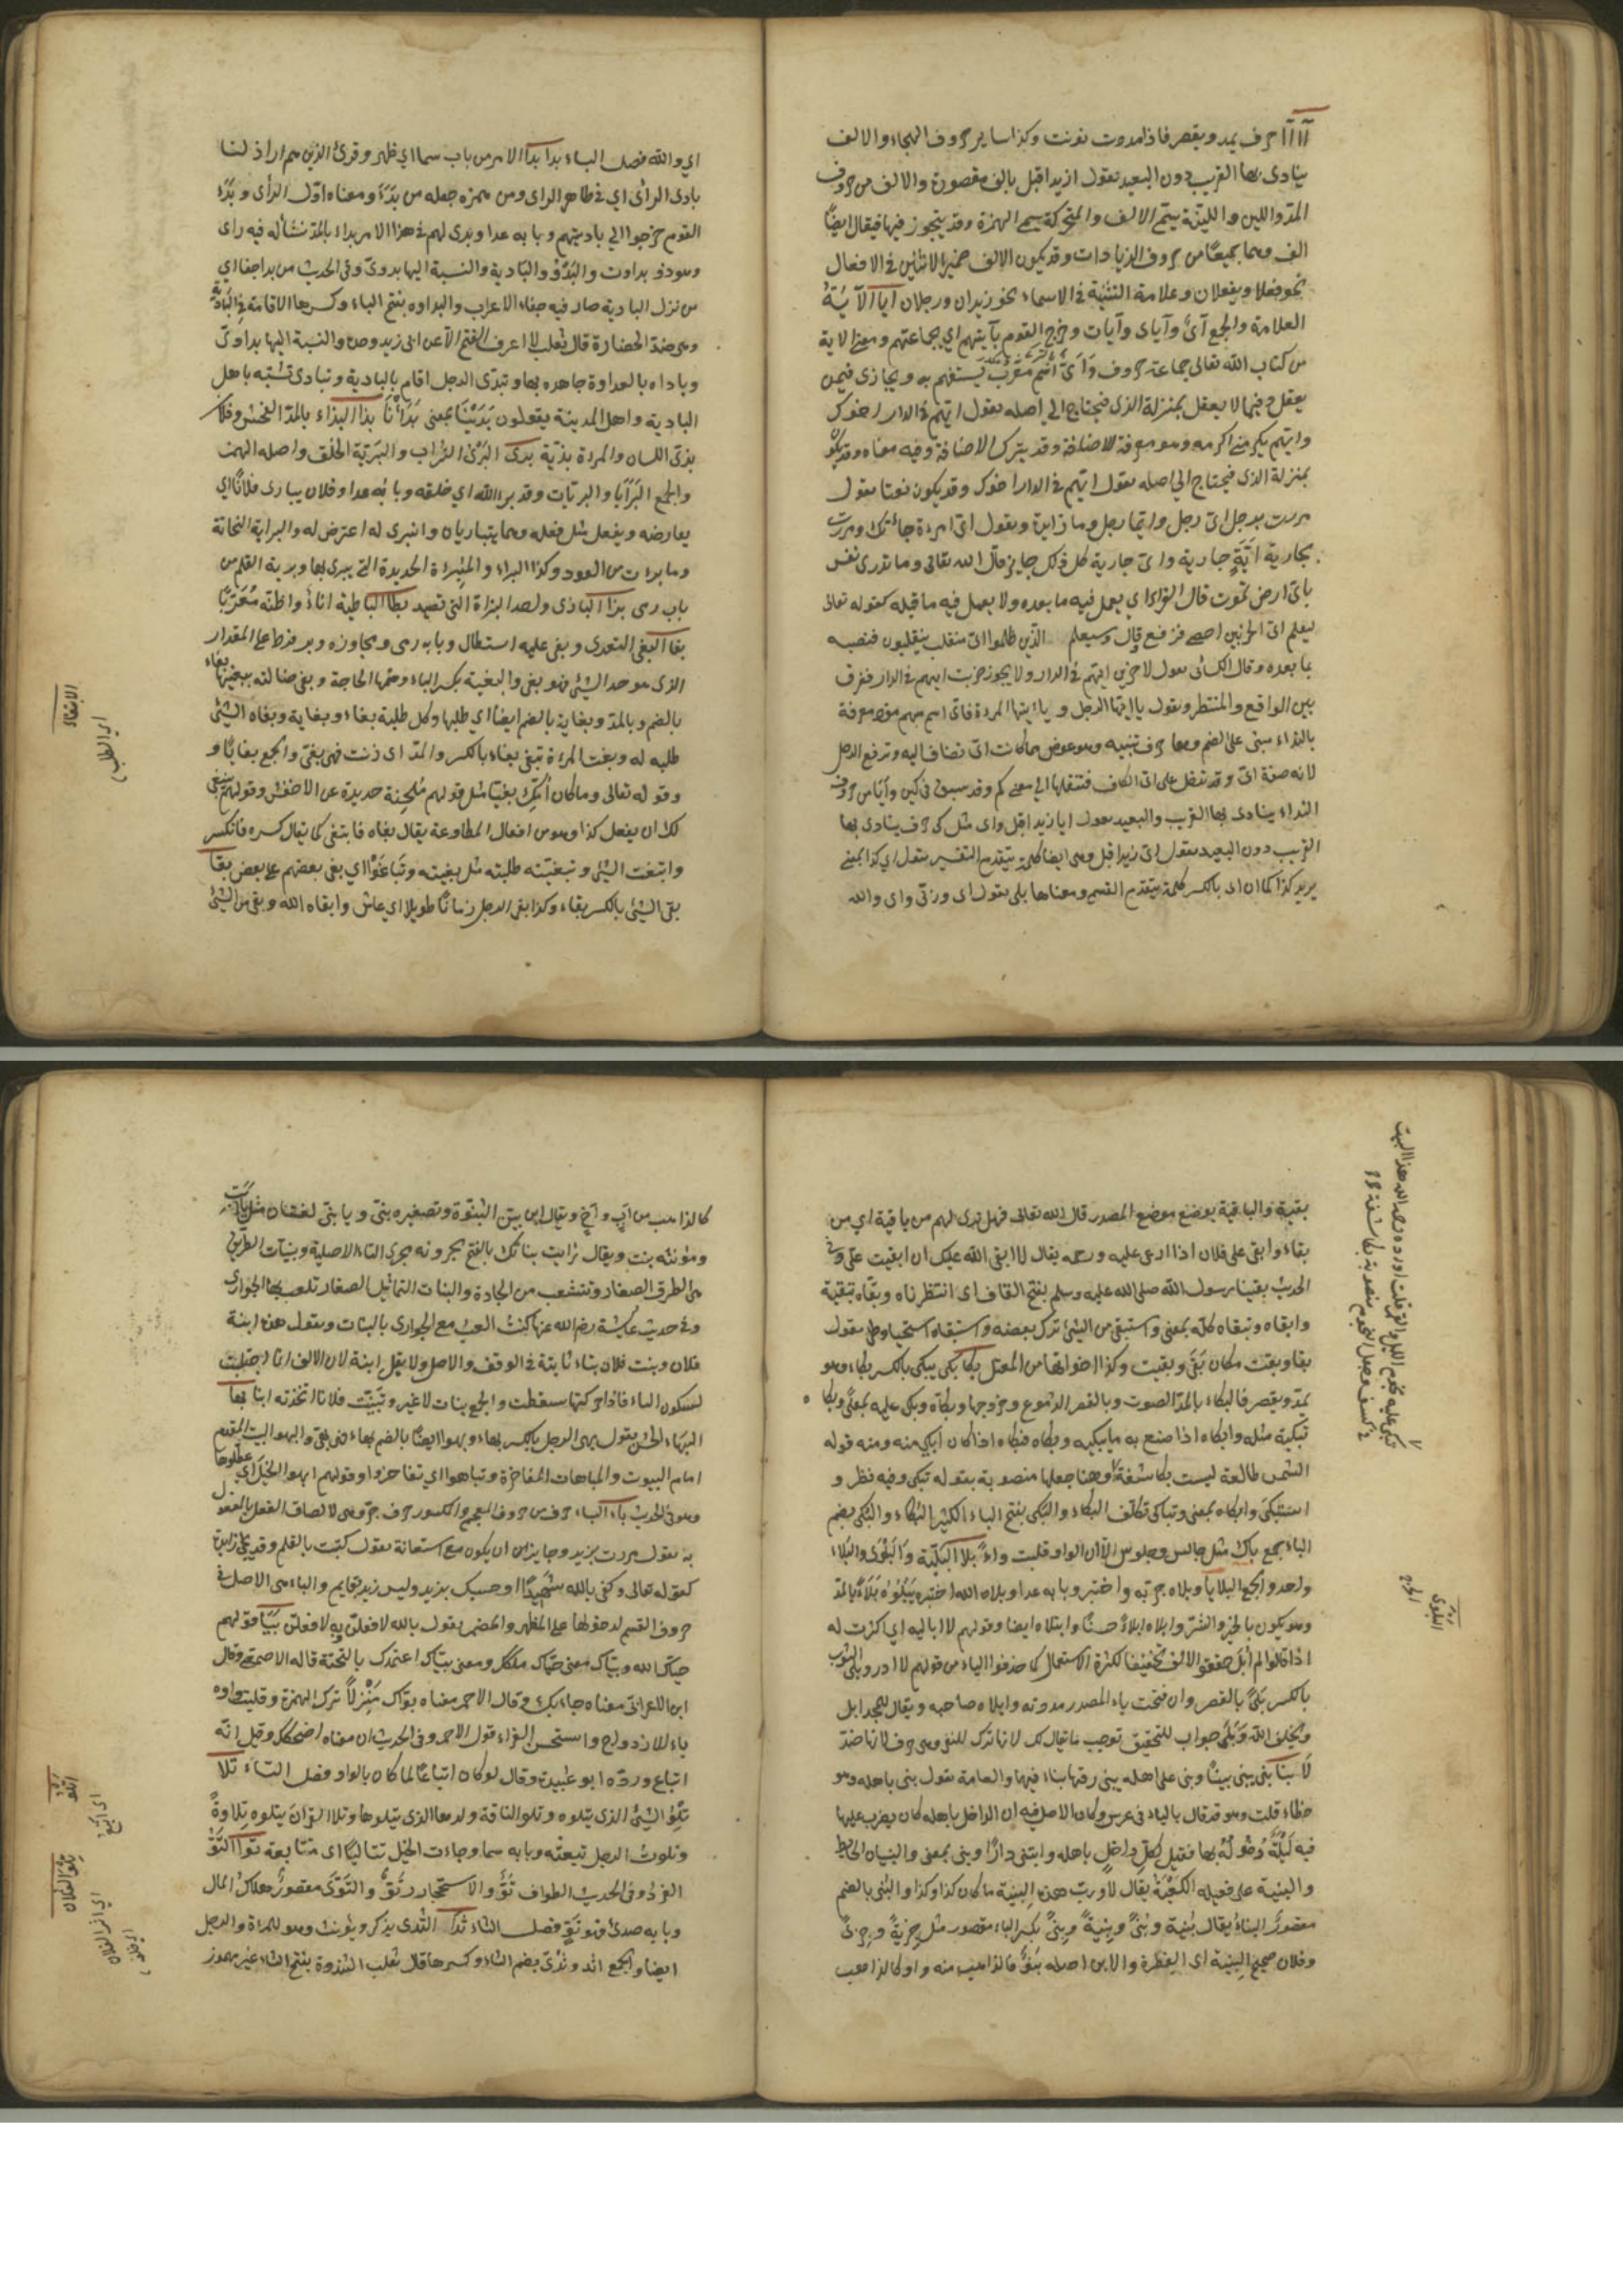 آ ا حرف يمد ويقصر فاذا مددت نونت وكذا ساير حروف الهجاء والالف
ينادى بها القريب دون البعيد تقول ازيد اقبل بالف مقصورة والالف من حروف
المد واللين والليّنة يسمّى الالف والمتحركة يسمى الهمزة وقد يتجوز فيها فيقال ايضًا
الف وهما جميعًا من حروف الزيادات وقد يكون الالف ضمير الاثنين في الافعال
نحو فعلا ويفعلان وعلامة التثنية في الاسماء نحو زيدان ورجلان ايا الآيَةُ
العلامة والجمع آىٌ وآياى وآيات وخرج القوم بآيتهم اي بجماعتهم ومعنى الاية
من كتاب الله تعالى جماعة حروف وَأَىّ اسم معرب يستفهم به ويجازى فيمن
يعقل وفيما لا يعقل بمنزلة الذى فيحتاج الى اصله تقول ايّهم في الدار اخوك
وايّهم يكرمنى اكرمه وهو معرفة للاضافة وقد يترك الاضافة وفيه معناه وقد يكون
بمنزلة الذى فيحتاج الى اصله تقول ايهم في الدار اخوك وقد يكون نعتا تقول
مررت برجل اىّ رجل وايّما رجل وما زايدة وتقول اىّ امرءة جاءتك ومررت
بجارية اَيَّةِ جارية واىّ جارية كل ذلك جايز قال الله تعالى وما تدرى نفس
باىّ ارض تموت قال الفراء اى يعمل فيه ما بعده ولا يعمل فيه ما قبله كقوله تعالى
ليعلم اىّ الحزبين احصى فرفع وقال وسيعلم الذين ظلموا اىّ منقلب ينقلبون فنصبه
بما بعده وقال الكسائى تقول لاضربن ايّهم في الدار ولا يجوز ضربت ايهم في الدار ففرق
بين الواقع والمنتظر وتقول يا ايها الرجل و يا ايتها المرءة فاىّ اسم مبهم مفرد معرفة
بالنداء مبنى على الضم وها حرف تنبيه وهو عوض مما كانت اىّ تضاف اليه وترفع الرجل
لانه صفة اىّ وقد تدخل على اىّ الكاف فتنقلها الى معنى كم وقد سبق في كين وأيا من حروف
النداء ينادى بها القريب والبعيد تقول ايا زيد اقبل واى مثل كى حرف ينادى بها
القريب دون البعيد تقول اى زيد اقبل وهى ايضا كلمة يتقدم التفسير تقول اي كذا بمعنى
يريد كذا كما ان اى بالكسر كلمة يتقدم القسم ومعناها بلى تقول اى وربّى واى والله
اي والله فصل الباء بدا بدا الامر من باب سما اي ظهر وقرئ الذين هم اراذلنا
بادى الراى اي في ظاهر الراى ومن همزه جعله من بَدَءَ ومعناه اوّل الرأى وبَدَا
القوم خرجوا الى باديتهم وبابه عدا وبدى لهم في هذا الامر بداء بالمدّ نشأ له فيه راى
وهو ذو بدوات والبَدْوُ والبَادية والنسبة اليها بدوىّ وفى الحديث من بدا جفا اي
من نزل البادية صار فيه جفاء الاعراب والبداوه بفتح الباء وكسرها الاقامة في البادية
وهى ضدّ الحضارة قال ثعلب لا اعرف الفتح الّا عن ابى زيد وحده والنسبة اليها بداوىّ
وباداه بالعداوة جاهره بها وتبدّى الرجل اقام بالبادية وتبادى تشبّه باهل
البادية واهل المدينة يقولون بَدَيْنَا بمعنى بَدَأْنَا بذا البذاء بالمدّ الفحش وفلان
بذىّ اللسان والمرءة بذيّة برى البَرَى التراب والبَرِيّة الخلق واصله الهمز
والجمع البَرَايَا والبريّات وقد براه الله اي خلقه وبابه عدا وفلان يبارى فلانًا اي
يعارضه ويفعل مثل فعله وهما يتباريان وانبرى له اعترض له والبراية النحاتة
وما بريت من العود وكذا البراء والمِبْراة الحديدة التى يبرى بها وبرية القلم من
باب رمى بزا البازى واحد البزاة التى تصيد بطا الباطية اناءٌ واظنّه مُعَرّبًا
بغا البغى التعدى وبغى عليه استطال وبابه رمى ومجاوزه وبر فرط على المقدار
الذى هو حد الشئ فهو بغى والبغية بكسر الباء وضمّها الحاجة وبغى ضالته يبغيها بغاء
بالضم وبالمدّ وبغاية بالضم ايضا اي طلبها وكل طلبة بغاء وبغاية وبغاه الشئ
طلبه له وبغت المرءة تبغى بغاء بالكسر والمدّ اى زنت فهى بغىّ والجمع بغايًا و
وقوله تعالى وما كان أمّكِ بغيًا مثل قولهم مِلحفة جديدة عن الاخفش وقولهم ينبغى
لك ان يفعل كذا وهو من افعال المطاوعة يقال بغاه فابتغى كما يقال كسره فانكسر
وابتغيت الشئ وتبغّيته طلبته مثل بغيته وتَبَاغَوْا اي بغى بعضهم على بعض بقا
بقى الشئ بالكسر بقاء وكذا بقى الرجل زمانًا طويلا اي عاش وابقاه الله وبقى من الشئ
الابتغاء
اي الطلب
بقية والباقية يوضع موضع المصدر قال الله تعالى فهل ترى لهم من باقية اي من
بقاء وابقى على فلان اذا ارعى عليه ورحمه يقال لا ابقى الله عليك ان ابقيت علىّ وفى
الحديث بقينا رسول الله صلى الله عليه وسلم بفتح القاف اى انتظرناه وبقّاه تبقية
وابقاه وتبقاه كلّه بمعنى واستبقى من الشئ ترك بعضه واستبقاه استحياه وطى تقول
بقا وبقت مكان بَقِىَ وبقيت وكذا اخواتها من المعتل بكا بكى يبكى بالكسر بكاء وهو
يمدّ ويقصر فالبكاء بالمدّ الصوت وبالقصر الدموع وخروجها وبكاه وبكى عليه بمعنًى وبكّا
تبكية مثله وابكاه اذا صنع به ما يبكيه وبكاه فبكاه اذا كان ابكى منه ومنه قوله
الشمس طالعة ليست بكاسفة وهنا جعلها منصوبة بقوله تبكى وفيه نظر و
استبكى وابكاه بمعنى وتباكى تكلّف البكاء والبكى بفتح الباء الكثير البكاء والبُكى بضم
الباء جمع باكٍ مثل جالس وجلوس الّا ان الواو قلبت ياءً بلا البَلِيّة والبَلْوَى والبلاء
واحد والجمع البلايا وبلاه جرّبه واختبر وبابه عدا وبلاه الله اختبره يَبْلُوْه بَلَاءً بالمدّ
وهو يكون بالخير والشرّ وابلاه ابلاءً حسنًا وابتلاه ايضا وقولهم لا اباليه اي اكترث له
اذا قالوا لم أبل حذفوا الالف تخفيفا لكثرة الاستعمال كما حذفوا الياء من قولهم لا ادر وبلى الثوب
بالكسر بَلىً بالقصر وان فتحت باء المصدر مددته وابلاه صاحبه ويقال للمجد ابل
ويخلف الله وَبَلَى جواب للتحقيق توجب ما يقال لك لانها ترك للنفى وهى حرف لانها ضدّ
لَا بنا بَنَى يبنى بيتًا وبنى على اهله يبنى زفّها بناء فيها والعامة تقول بنى باهله وهو
خطاء قلت وهو قد قال بالباء فى عرس وكان الاصل فيه ان الداخل باهله كان يضرب عليها
قبّة لَيْلَةَ دُخُولهِ بها فقيل لكلِ داخلٍ باهله وابتنى دارًا وبنى بمعنى والبنيان الحايط
والبنية على فعيله الكَعْبَةُ يقال لا وربّ هذه البنية ما كان كذا وكذا والبُنى بالضم
مقصورٌ البناءُ يقال بُنية وبُنىً وبِنيةً وبِنىً بكسر الباء مقصور مثل جِزيةٌ وجِزىً
وفلان صحيح البِنيَة اى الفطرة والابن اصله بَنَوٌ فالذاهب منه واو كالذاهب
تبكى عليه نجوم الليل والقمر قلت اورده رحمه الله هذا البيت
في كسف وجعل النجوم منصوبة بكاسفة
البلوى
كالذاهب من ابٍ واخٍ ويقال ابن بيّن البُنُوّة وتصغيره بنىّ ويا بنىّ لغتان مثل يا ابت
ومؤنثه بنت ويقال رايت بناتك بالفتح يجرونه مجرى التاء الاصلية وبنيات الطريق
هى الطرق الصغار وتتشعب من الجادة والبنات التماثيل الصغار تلعب بها الجوارى
وفى حديث عايشة رضى الله عنها كنتُ العب مع الجوارى بالبنات وتقول هذه ابنة
فلان وبنت فلان بتاء ثابتة فى الوقف والاصل ولا يقل ابنة لان الالف انما اجتلبت
لسكون الباء فاذا حركتها سقطت والجمع بنات لا غير وتَبَنّيت فلانا اتخذته ابنا بها
البَهَاء الحسن تقول بهى الرجل بالكسر بهاء وبهو ايضًا بالضم بهاء فهى بهىّ والبهو البيت المقدم
امام البيوت والمباهات المفاخرة وتباهوا اي تفاخروا وقولهم ابهوا الخيل اي عطلوها
وهو فى الحديث باء الباء حرف من حروف المعجم والمكسور حرف جرّ وهى لالصاق الفعل بالمفعول
به تقول مررت بزيد وجايز ان يكون مع استعانة تقول كتبت بالقلم وقد يجئ زايدة
كقوله تعالى وكفى بالله شَهِيدًا وحسبك بزيد وليس زيد بقايم والباء هى الاصل فى
حروف القسم لدخولها على المظهر والمضمر تقول بالله لافعلنّ وبه لافعلنّ بَيّا قولهم
حيّاك الله وبيّاك معنى حيّاك ملّكك ومعنى بيّاك اعتمدك بالتحيّة قاله الاصمعى وقال
ابن الاعرابى معناه جاء بك وقال الاحمر معناه بوّاك مَنْزِلاً ترك الهمزة وقلبت واوه
ياء للازدواج واستحسن الفراء قول الاحمر وفى الحديث ان معناه اضحكك وقيل انّه
اتباع وردّه ابو عبيدة وقال لو كان اتباعًا لما كان بالواو فصل التاء تلا
تِلْوُ الشئ الذى يتلوه وتلو الناقة ولدها الذى يتلوها وتلا القرآن يتلوه تِلاوةً
وتلوت الرجل تبعته وبابه سما وجاءت الخيل تتاليًا اى متتابعة توا التَوُّ
الفرد وفى الحديث الطواف تَوٌّ والاستجمار تَوٌّ والتَوَى مقصورٌ هلاك المال
وبابه صدىَ فهو تَوٍ فصل الثاء ثدا الثدى يذكر ويؤنث وهو للمرءة والرجل
ايضا والجمع اثد وثدىّ بضم الثاء وكسرها قال ثعلب الثندوة بفتح الثاء غير مهموز
اتلو
اي اتبع
تلو الفلان